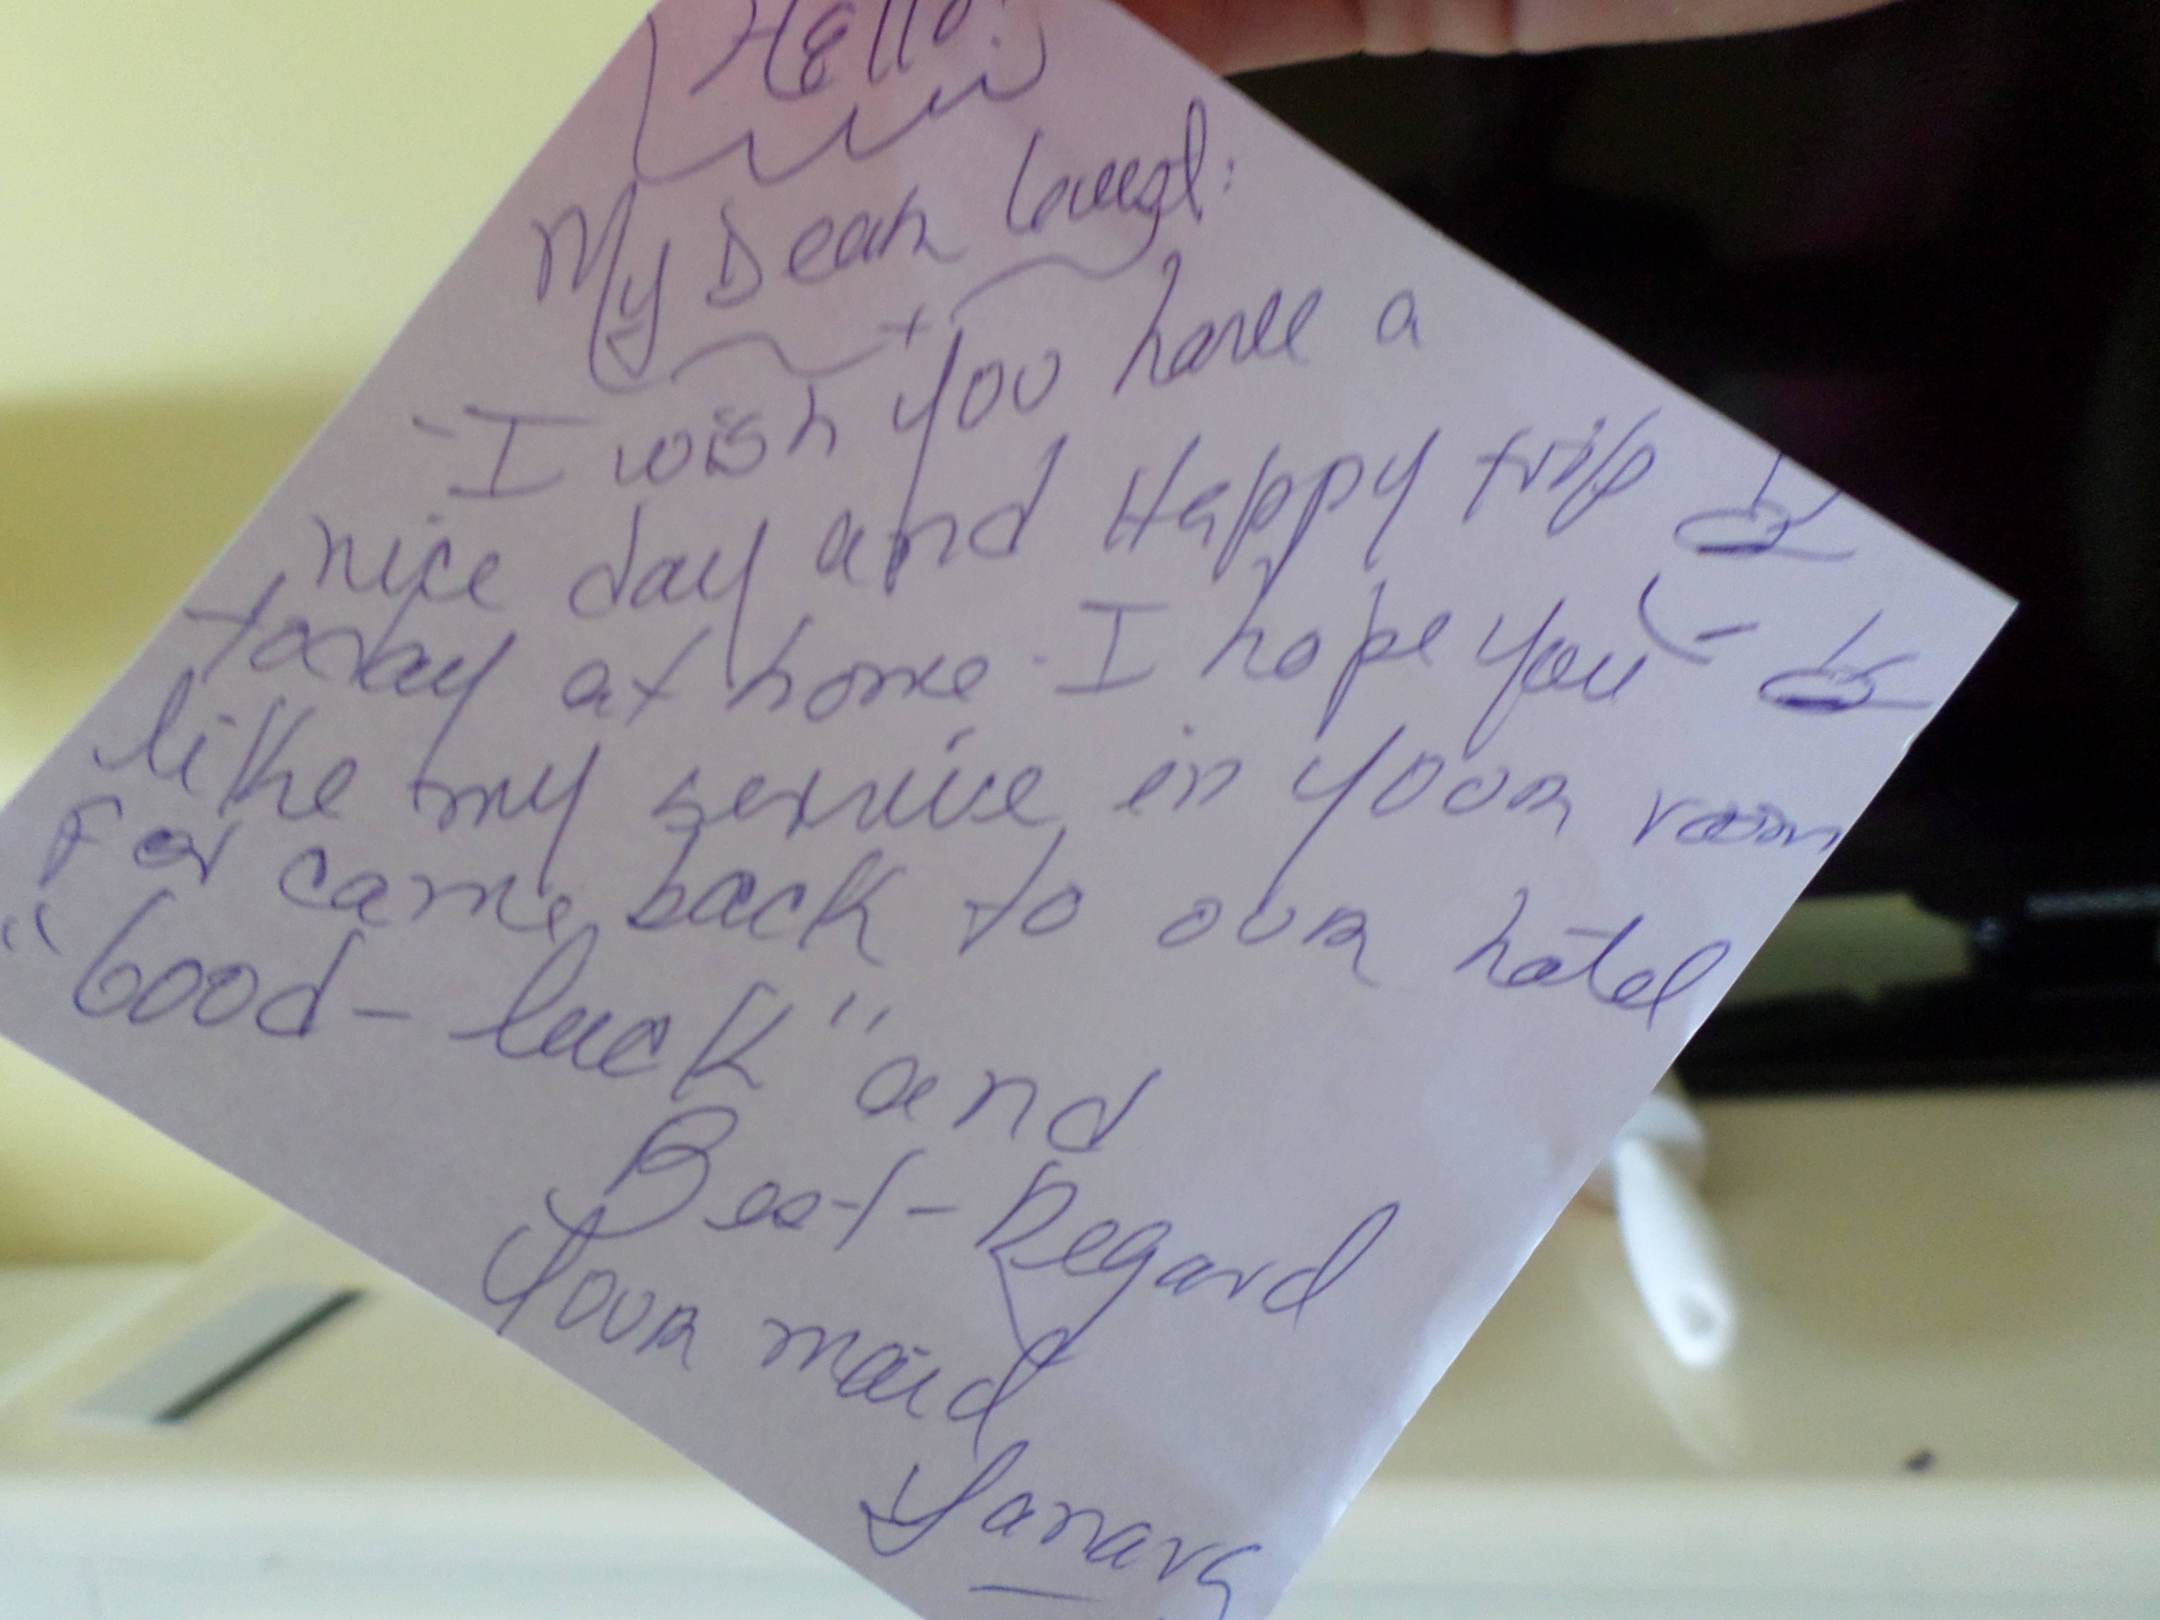 Hello!
My Dear
I wish you have a
nice day and Happy trip
today at home. I hope you
like my service in your room
For came back to our hotel
"Good-luck" and
Best-Regard
Your maid